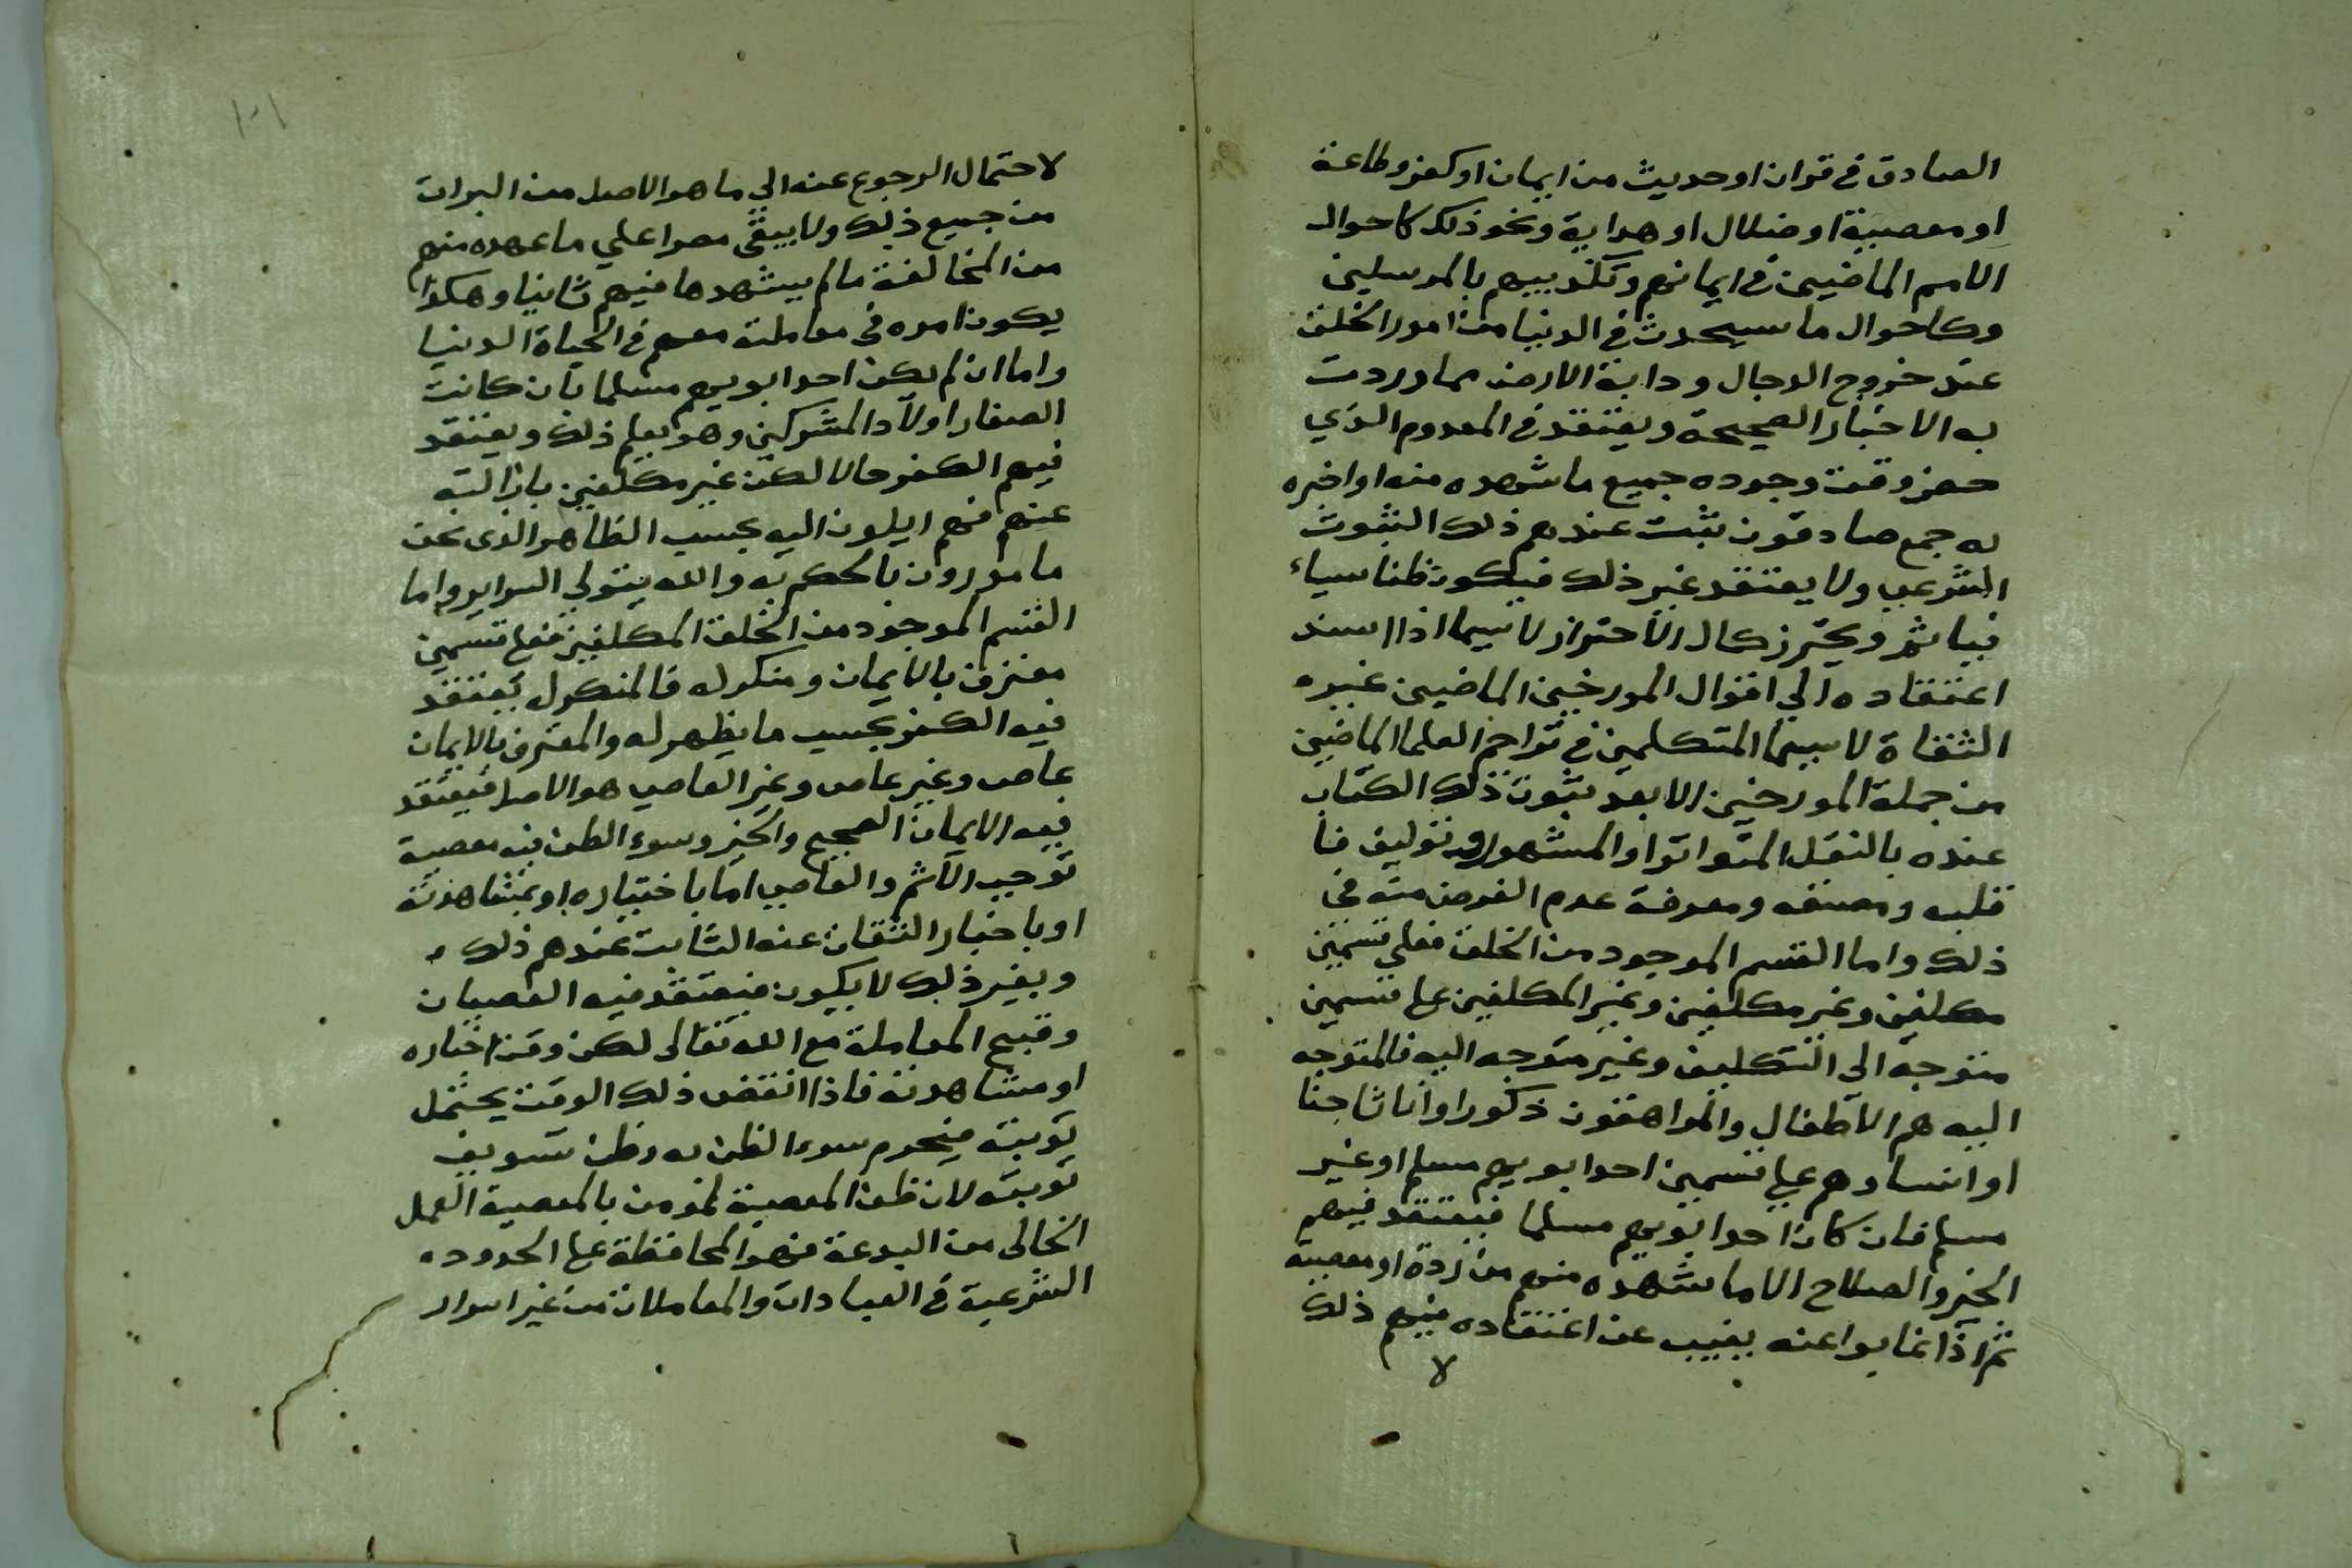 الصادق في قران او حديث من ايمان او كفر وطاعة
او معصية او ضلال او هداية ونحو ذلك كاحوال
الامم الماضيين في ايمانهم وتكذيبهم بالمرسلين
وكاحوال ما سيحدث في الدنيا من امور الخلق
عند خروج الدجال ودابة الارض مما وردت
به الاخبار الصحيحة ويعتقد في المعدوم الذي
حضر وقت وجوده جميع ما شهده منه او اخبره
له جمع صادقون ثبت عندهم ذلك الثبوت
الشرعي ولا يعتقد غير ذلك فيكون ظنا سياء
فياثم ويحترز كال الاحتراز لا سيما اذا اسند
اعتقاده الي اقوال المورخين الماضيين غيره
الثقاة لا سيما المتكلمين في تراجم العلما الماضيين
من جملة المورخين الا بعد ثبوت ذلك الكتاب
عنده بالنقل المتواتر او المشهور وتوليف فا
قلبه ومصنفه ومعرفة عدم الغرض منه في
ذلك واما القسم الموجود من الخلق فعلي قسمين
مكلفين وغير مكلفين وغير المكلفين علي قسمين
متوجه الى التكليف وغير متوجه اليه فالمتوجه
اليه هم الاطفال والمراهقون ذكورا واناثا جنا
او انسا وهم علي قسمين احد ابويهم مسلم او غير
مسلم فان كان احد ابويهم مسلما فيعتقد فيهم
الخير والصلاح الا ما شهده منهم من ردة او معصية
ثم اذا غابوا عنه يغيب عن اعتقاده فيهم ذلك
لا
١٠١
لاحتمال الرجوع عنه الي ما هو الاصل من البرات
من جميع ذلك ولا يبقى مصرا علي ما عهده منهم
من المخالفة ما لم يشهدها فيهم ثانيا وهكذا
يكون امره في معاملته معهم في الحياة الدنيا
واما ان لم يكن احد ابويهم مسلما بان كانت
الصغار اولاد المشركين وهو يعلم ذلك ويعتقد
فيهم الكفر حالا لكن غير مكلفين بازالته
عنهم فهم ايلون اليه بحسب الظاهر الذى نحن
مامورون بالحكم به والله يتولي السراير واما
القسم الموجود من الخلق المكلفين فعلي قسمين
معترف بالايمان ومنكر له فالمنكر له يعتقد
فيه الكفر بحسب ما يظهر له والمعترف بالايمان
عاص وغير عاص وغير العاصي هو الاصل فيعتقد
فيه الايمان الصحيح والخير وسوء الظن فيه معصية
توجب الاثم والعاصي اما باختياره او بمشاهدته
او باخبار الثقات عنه الثابت عندهم ذلك
وبغير ذلك لا يكون فيعتقد فيه العصيان
وقبيح المعاملة مع الله تعالى لكن وقت اخباره
او مشاهدته فاذا انقضى ذلك الوقت يحتمل
توبته فيحرم سوء الظن به وظن تسويف
توبته لان ظن المعصية لمومن بالمعصية العمل
الخالى من البدعة فهو المحافظة علي الحدوده
الشرعية في العبادات والمعاملات من غير اسرار